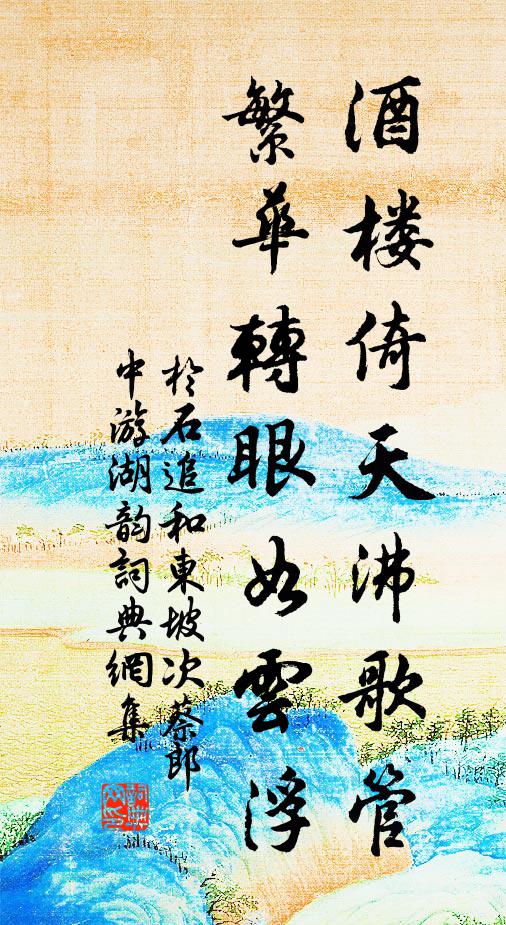 酒楼倚天沸歌管
繁華轉眼如雲浮
於石追和東坡次蔡郎
中游湖韵詞典網集